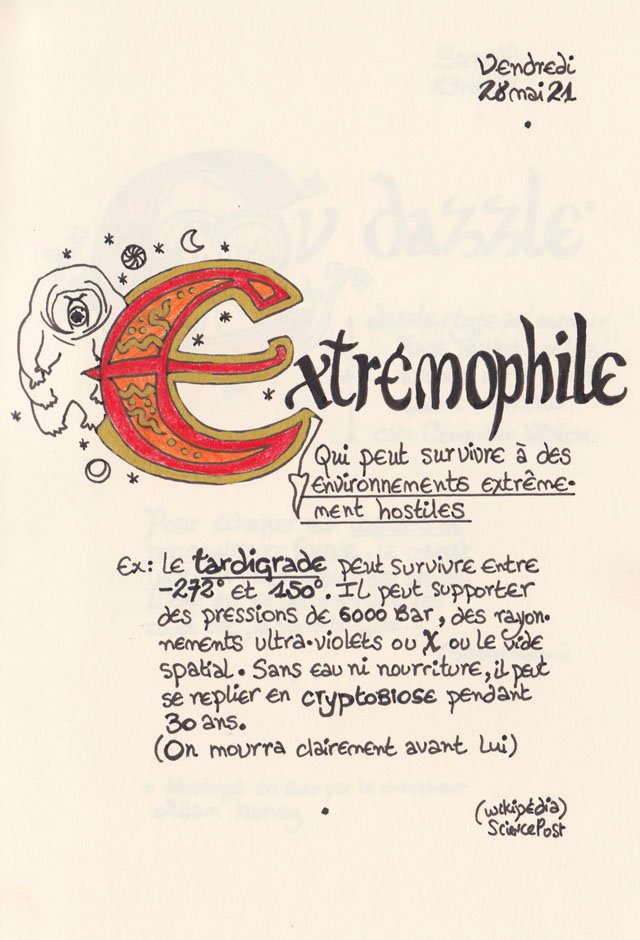 Vendredi
28 mai 21
Extremophile
Qui peut survivre à des
environnements extrême-
ment hostiles
Ex: Le tardigrade peut survivre entre
-272° et 150°. Il peut supporter
des pressions de 6000 Bar, des rayon-
nements ultra-violets ou X ou le vide
spatial. Sans eau ni nourriture, il peut
se replier en cryptobiose pendant
30 ans.
(On mourra clairement avant lui)
(wikipédia)
SciencePost
CV dazzle